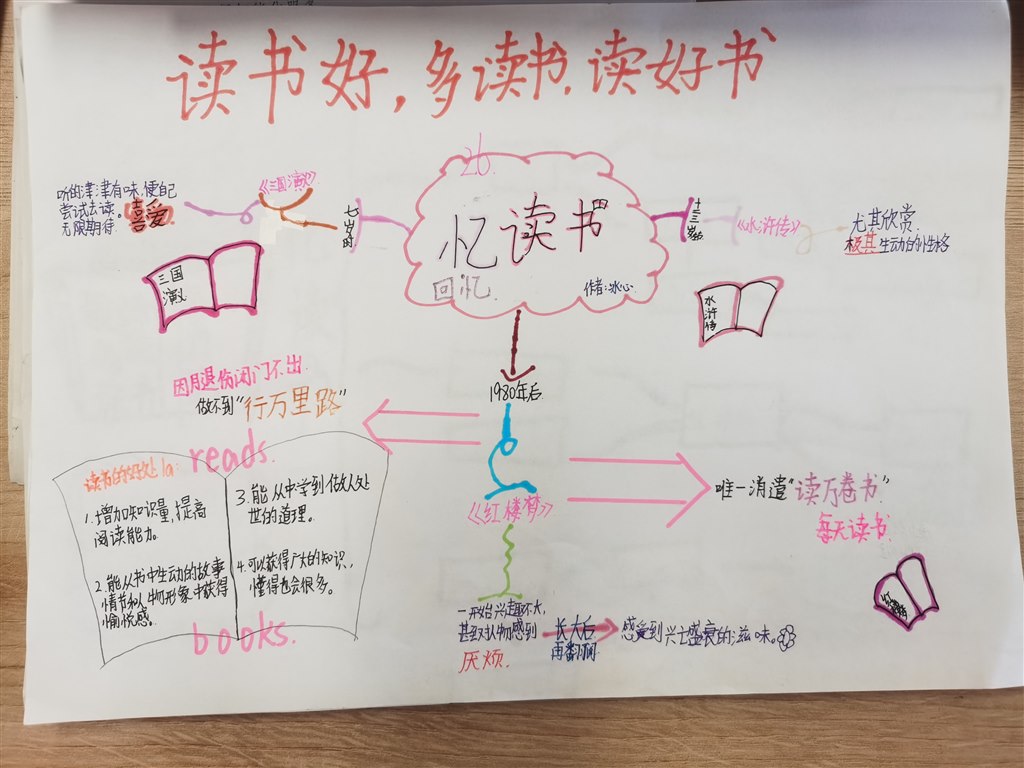 读书好,多读书,读好书
26.
忆读书
回忆
作者:冰心
七岁时
《三国演义》
听的津津有味,便自己
尝试去读。
无限期待
喜爱
三国
演义
十三岁
《水浒传》
尤其欣赏
极其生动的性格
水浒传
1980年后
因月退伤闭门不出.
做不到“行万里路”
唯一消遣“读万卷书”
每天读书
《红楼梦》
一开始兴趣不大,
甚至对人物感到
厌烦.
长大后
再翻阅
感受到兴亡盛衰的滋味。
reads.
读书的好处la:
1.增加知识量,提高
阅读能力。
2.能从书中生动的故事
情节和人物形象中获得
愉悦感.
3.能从中学到做人处
世的道理。
4.可以获得广大的知识,
懂得也会很多。
books.